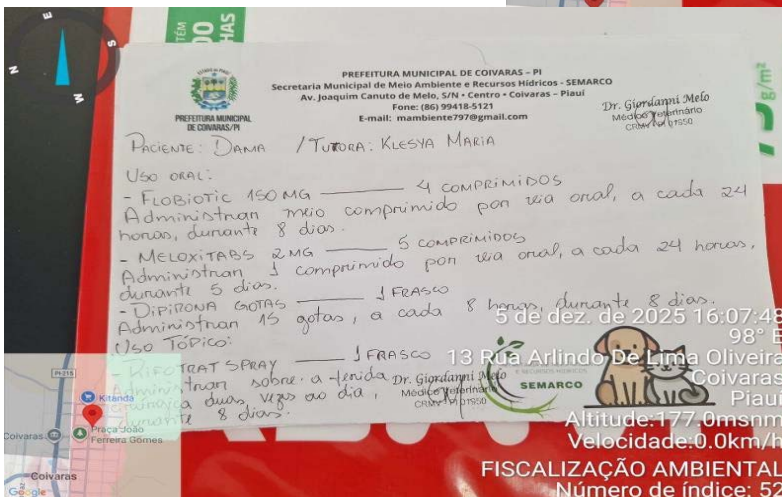 PREFEITURA MUNICIPAL DE COIVARAS - PI
Secretaria Municipal de Meio Ambiente e Recursos Hídricos - SEMARCO
Av. Joaquim Canuto de Melo, S/N • Centro • Coivaras - Piauí
Fone: (86) 99418-5121
E-mail: mambiente797@gmail.com
PREFEITURA MUNICIPAL
DE COIVARAS/PI
Dr. Giordanni Melo
Médico Veterinário
g/m²
PACIENTE: DAMA / TUTORA: KLESYA MARIA
USO ORAL:
- FLOBIOTIC 150 MG 4 COMPRIMIDOS
Administrar meio comprimido por via oral, a cada 24
horas, durante 8 dias.
- MELOXITABS 2MG 5 COMPRIMIDOS
Administrar 1 comprimido por via oral, a cada 24 horas,
durante 5 dias.
- DIPIRONA GOTAS 1 FRASCO
Administrar 15 gotas, a cada 8 horas, durante 8 dias.
USO TÓPICO:
SPRAY 1 FRASCO
sobre a ferida
duas vezes ao dia,
8 dias.
Dr. Giordanni Melo
Médico Veterinário
SEMARCO
5 de dez. de 2025 16:07:48
98° E
13 Rua Arlindo De Lima Oliveira
Coivaras
Piauí
Altitude:177.0msnm
Velocidade:0.0km/h
FISCALIZAÇÃO AMBIENTAL
Número de índice: 52
N
E
S
W
PI-215
Kitanda
Praça João
Ferreira Gomes
Coivaras
Coivaras
Google